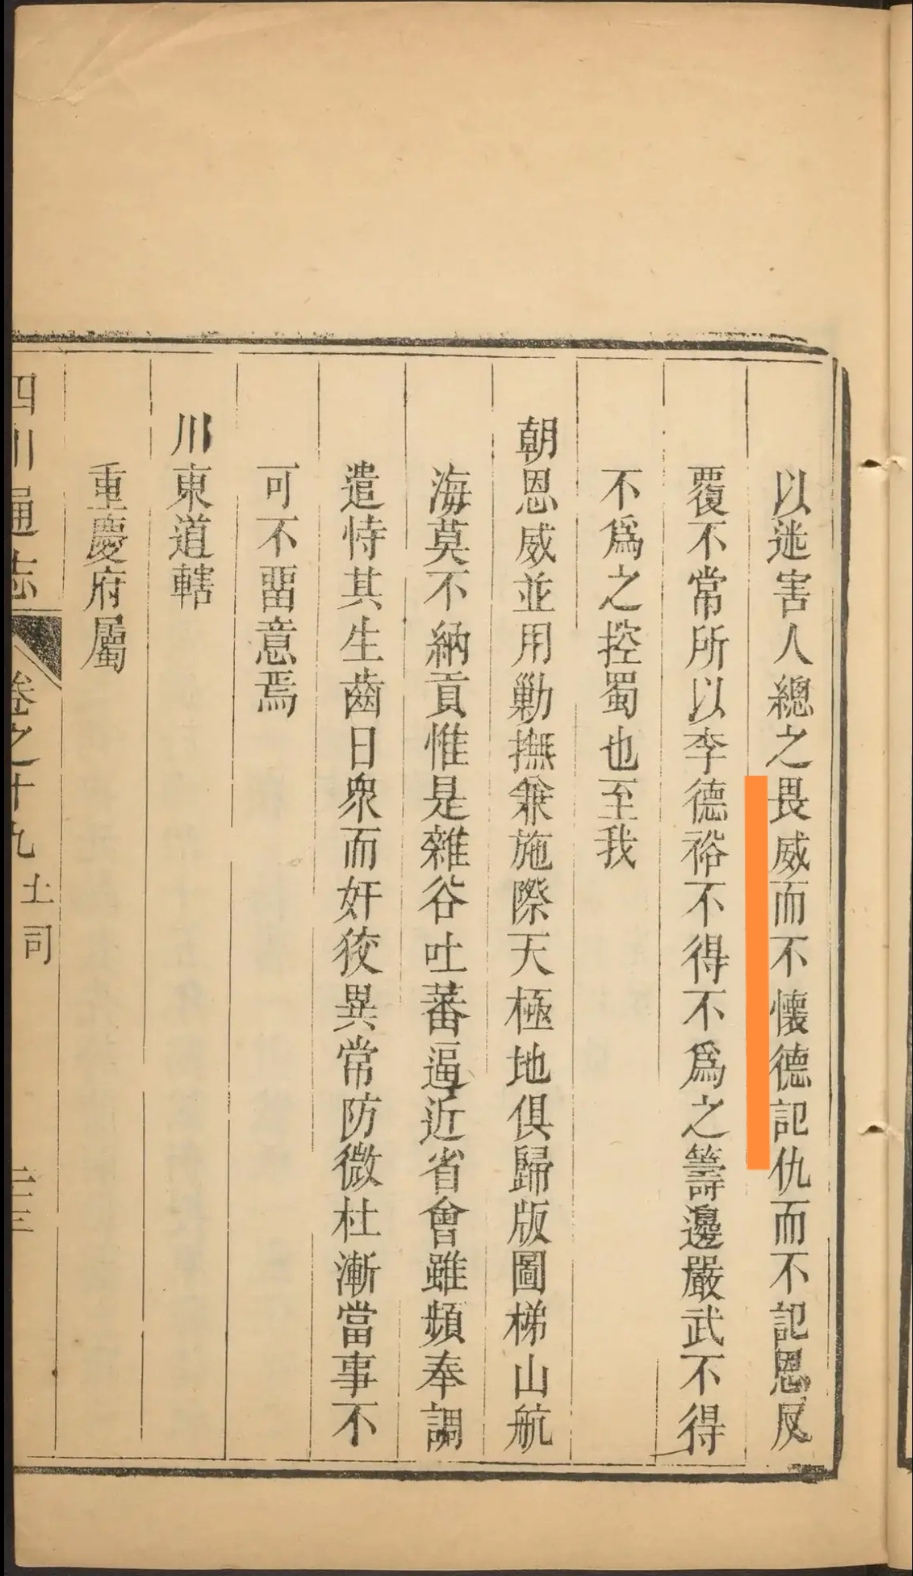 以逃害人總之畏威而不懷德記仇而不記恩反
覆不常所以李德裕不得不爲之籌邊嚴武不得
不爲之控蜀也至我
朝恩威並用勦撫兼施際天極地俱歸版圖梯山航
海莫不納貢惟是雜谷吐蕃逼近省會雖頻奉調
遣恃其生齒日衆而奸狡異常防微杜漸當事不
可不畱意焉
川東道轄
重慶府屬
四川通志 卷之十九 土司